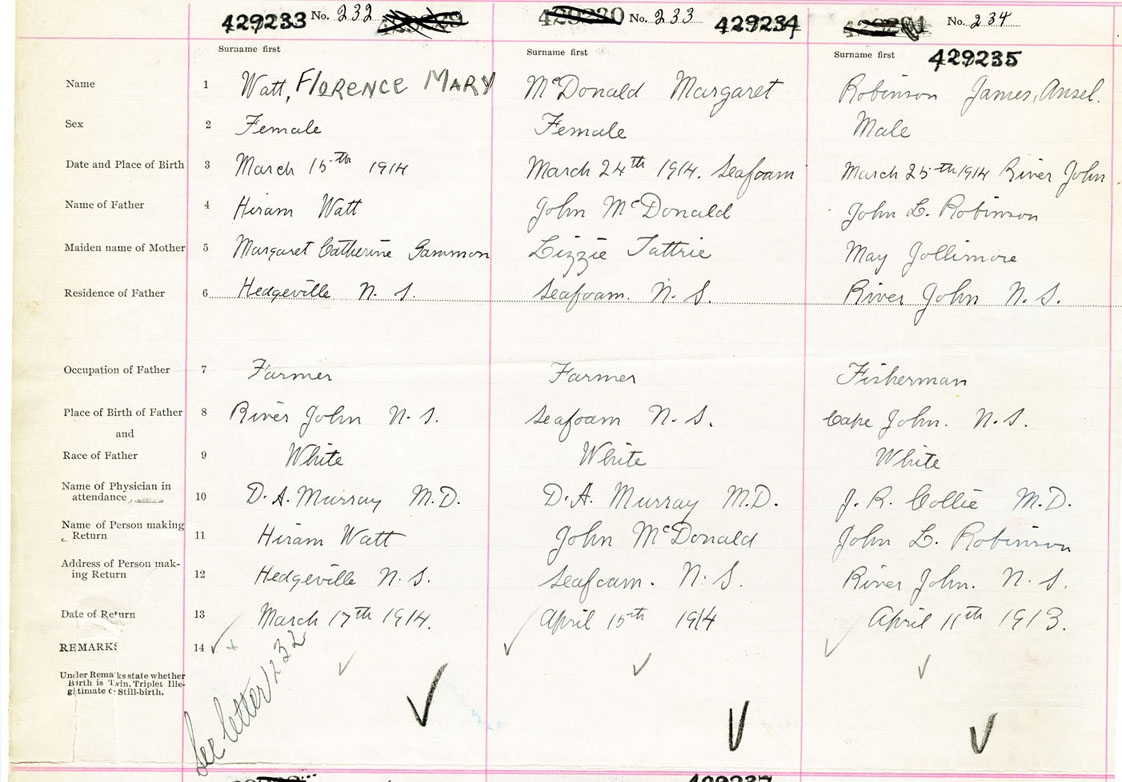 429233 No. 232 No. 233 429234 No. 234
Surname first Surname first Surname first 429235
Name 1 Watt, FLORENCE MARY McDonald Margaret Robinson James, Ansel.
Sex 2 Female Female Male
Date and Place of Birth 3 March 15th 1914 March 24th 1914. Seafoam March 25th 1914 River John
Name of Father 4 Hiram Watt John McDonald John L. Robinson
Maiden name of Mother 5 Margaret Catherine Gammon Lizzie Tattrie May Jollimore
Residence of Father 6 Hedgeville N. S. Seafoam. N. S. River John N. S.
Occupation of Father 7 Farmer Farmer Fisherman
Place of Birth of Father 8 River John N. S. Seafoam N. S. Cape John. N. S.
and
Race of Father 9 White White White
Name of Physician in
attendance 10 D. A. Murray M.D. D. A. Murray M.D. J. R. Collie M.D.
Name of Person making
Return 11 Hiram Watt John McDonald John L. Robinson
Address of Person mak-
ing Return 12 Hedgeville N. S. Seafoam. N. S. River John. N. S.
Date of Return 13 March 17th 1914. April 15th 1914 April 11th 1913.
REMARKS 14
Under Remarks state whether
Birth is Twin, Triplet Ille-
gitimate or Still-birth.
See letter 232
429237